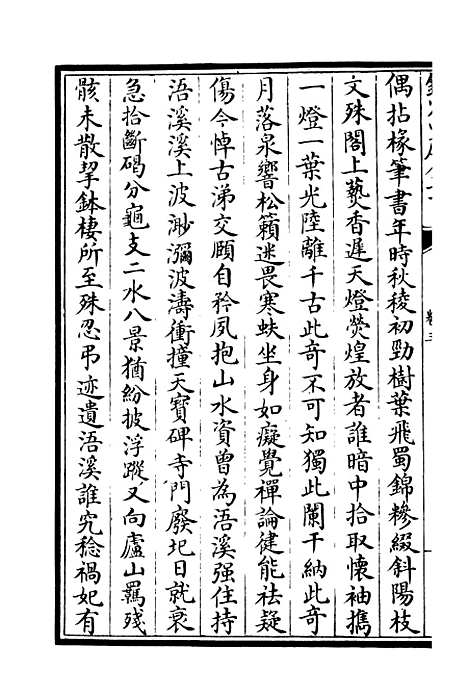 偶拈椽筆書年時秋稜初勁樹葉飛蜀錦糝綴斜陽枝
文殊閣上爇香遲天燈熒煌放者誰暗中拾取懷袖攜
一燈一葉光陸離千古此奇不可知獨此闌干納此奇
月落泉響松籟迷畏寒蚨坐身如癡覺禪論健能祛疑
傷今悼古涕交頤自矜夙抱山水資曾為浯溪强住持
浯溪溪上波渺瀰波濤衝撞天寶碑寺門廢圮日就衰
急拾斷碣分龜支二水八景猶紛披浮蹤又向廬山羈殘
骸未散挈鉢棲所至殊忍弔迹遺浯溪誰究稔禍妃有